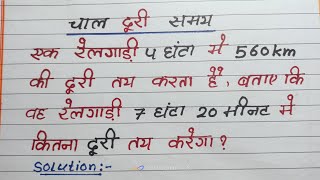 चाल दूरी समय
एक रेलगाड़ी 4 घंटा में 560km
की दूरी तय करता है, बताए कि
वह रेलगाड़ी 7 घंटा 20 मीनट में
कितना दूरी तय करेगा?
Solution:-